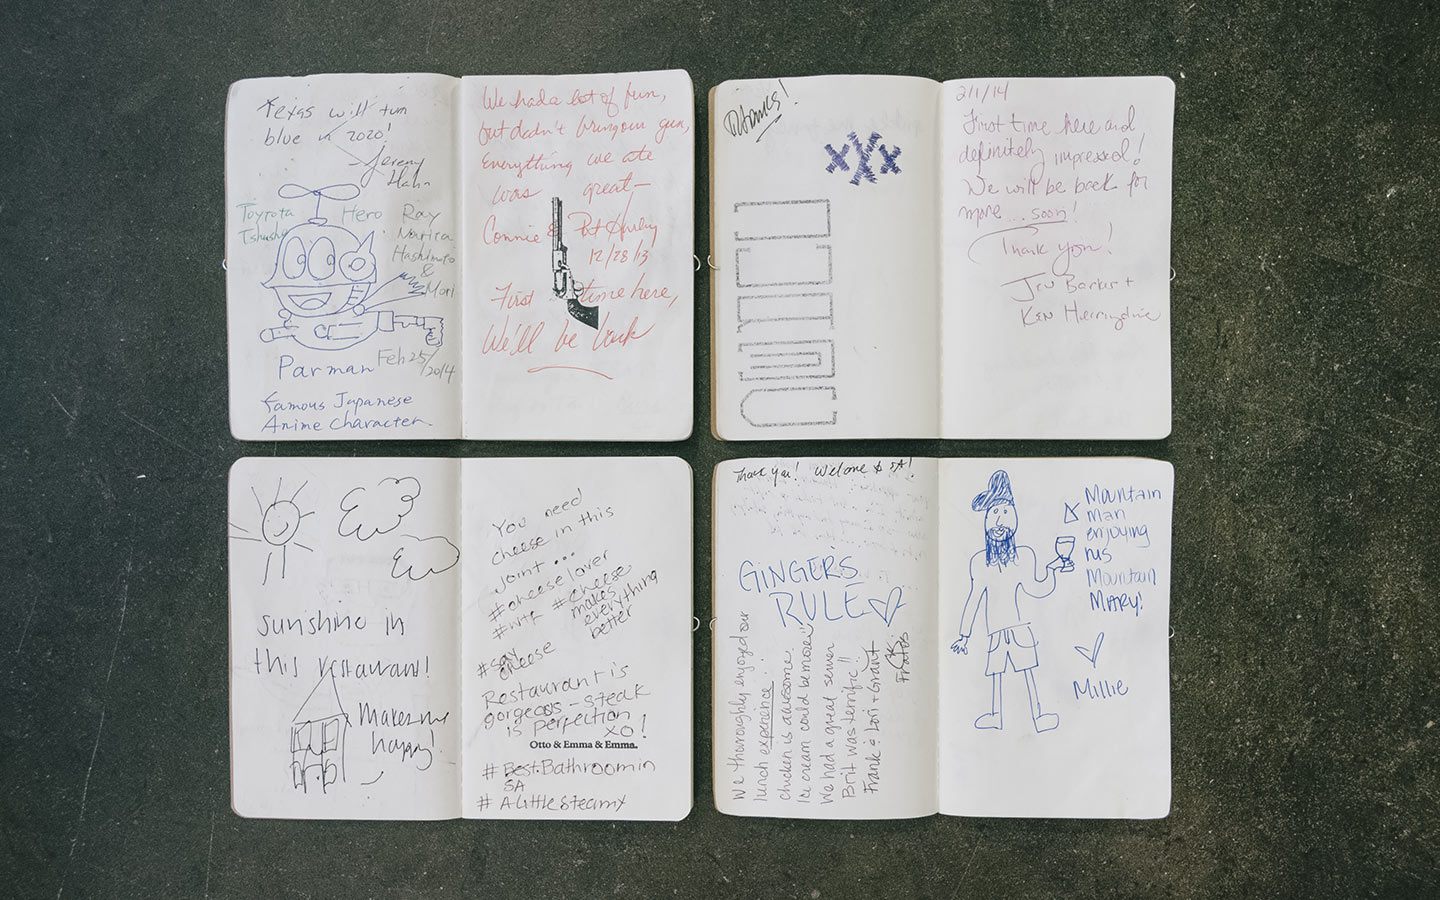 Texas will turn
blue in 2020!
Jeremy
Hahn
Toyrota
Hero
Ray
Narita
Hashimoto
&
Mori
Parman
Feb 25/2014
Famous Japanese
Anime Character.
We had a lot of fun,
but didn't bring our gun,
Everything we ate
was great—
Connie & Pat
12/28/13
First time here,
We'll be back
Thanks!
xXx
2/1/14
First time here and
definitely impressed!
We will be back for
more... soon!
Thank you!
Jen Barker +
Ken
sunshine in
this restaurant!
Makes me
happy!
You need
cheese in this
joint...
#cheeselover
#wtf #cheese
makes
everything
better
#say
cheese
Restaurant is
gorgeous - steak
is perfection
XO!
Otto & Emma & Emma.
#Best.Bathroom in
SA
#ALittleSteamy
Thank you! Welcome to SA!
GINGERS
RULE
We thoroughly enjoyed our
lunch experience!
Chicken is awesome.
Ice cream could be more
We had a great server
Brit was terrific!!
Frank & Lori + Grant
Mountain
man
enjoying
his
Mountain
Mary!
Millie